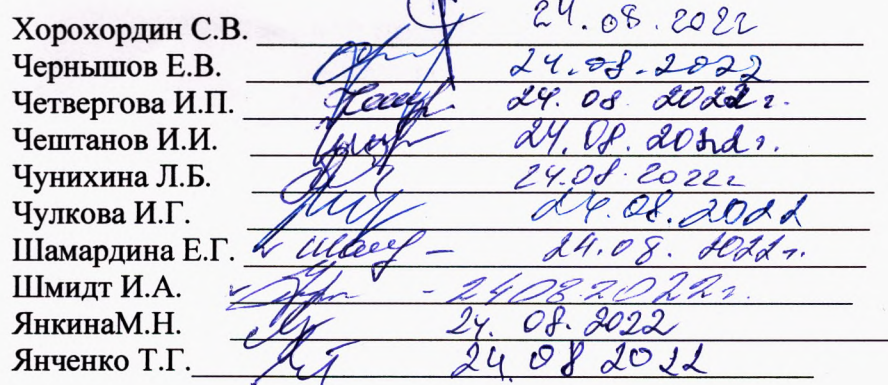 Хорохордин С.В. 24.08.2022
Чернышов Е.В. 24.08.2022
Четвергова И.П. 24.08 2022г.
Чештанов И.И. 24.08.2022г.
Чунихина Л.Б. 24.08.2022г
Чулкова И.Г. 24.08.2022
Шамардина Е.Г. 24.08. 2022г.
Шмидт И.А. - 24082022г.
ЯнкинаМ.Н. 24. 08. 2022
Янченко Т.Г. 24 08 2022